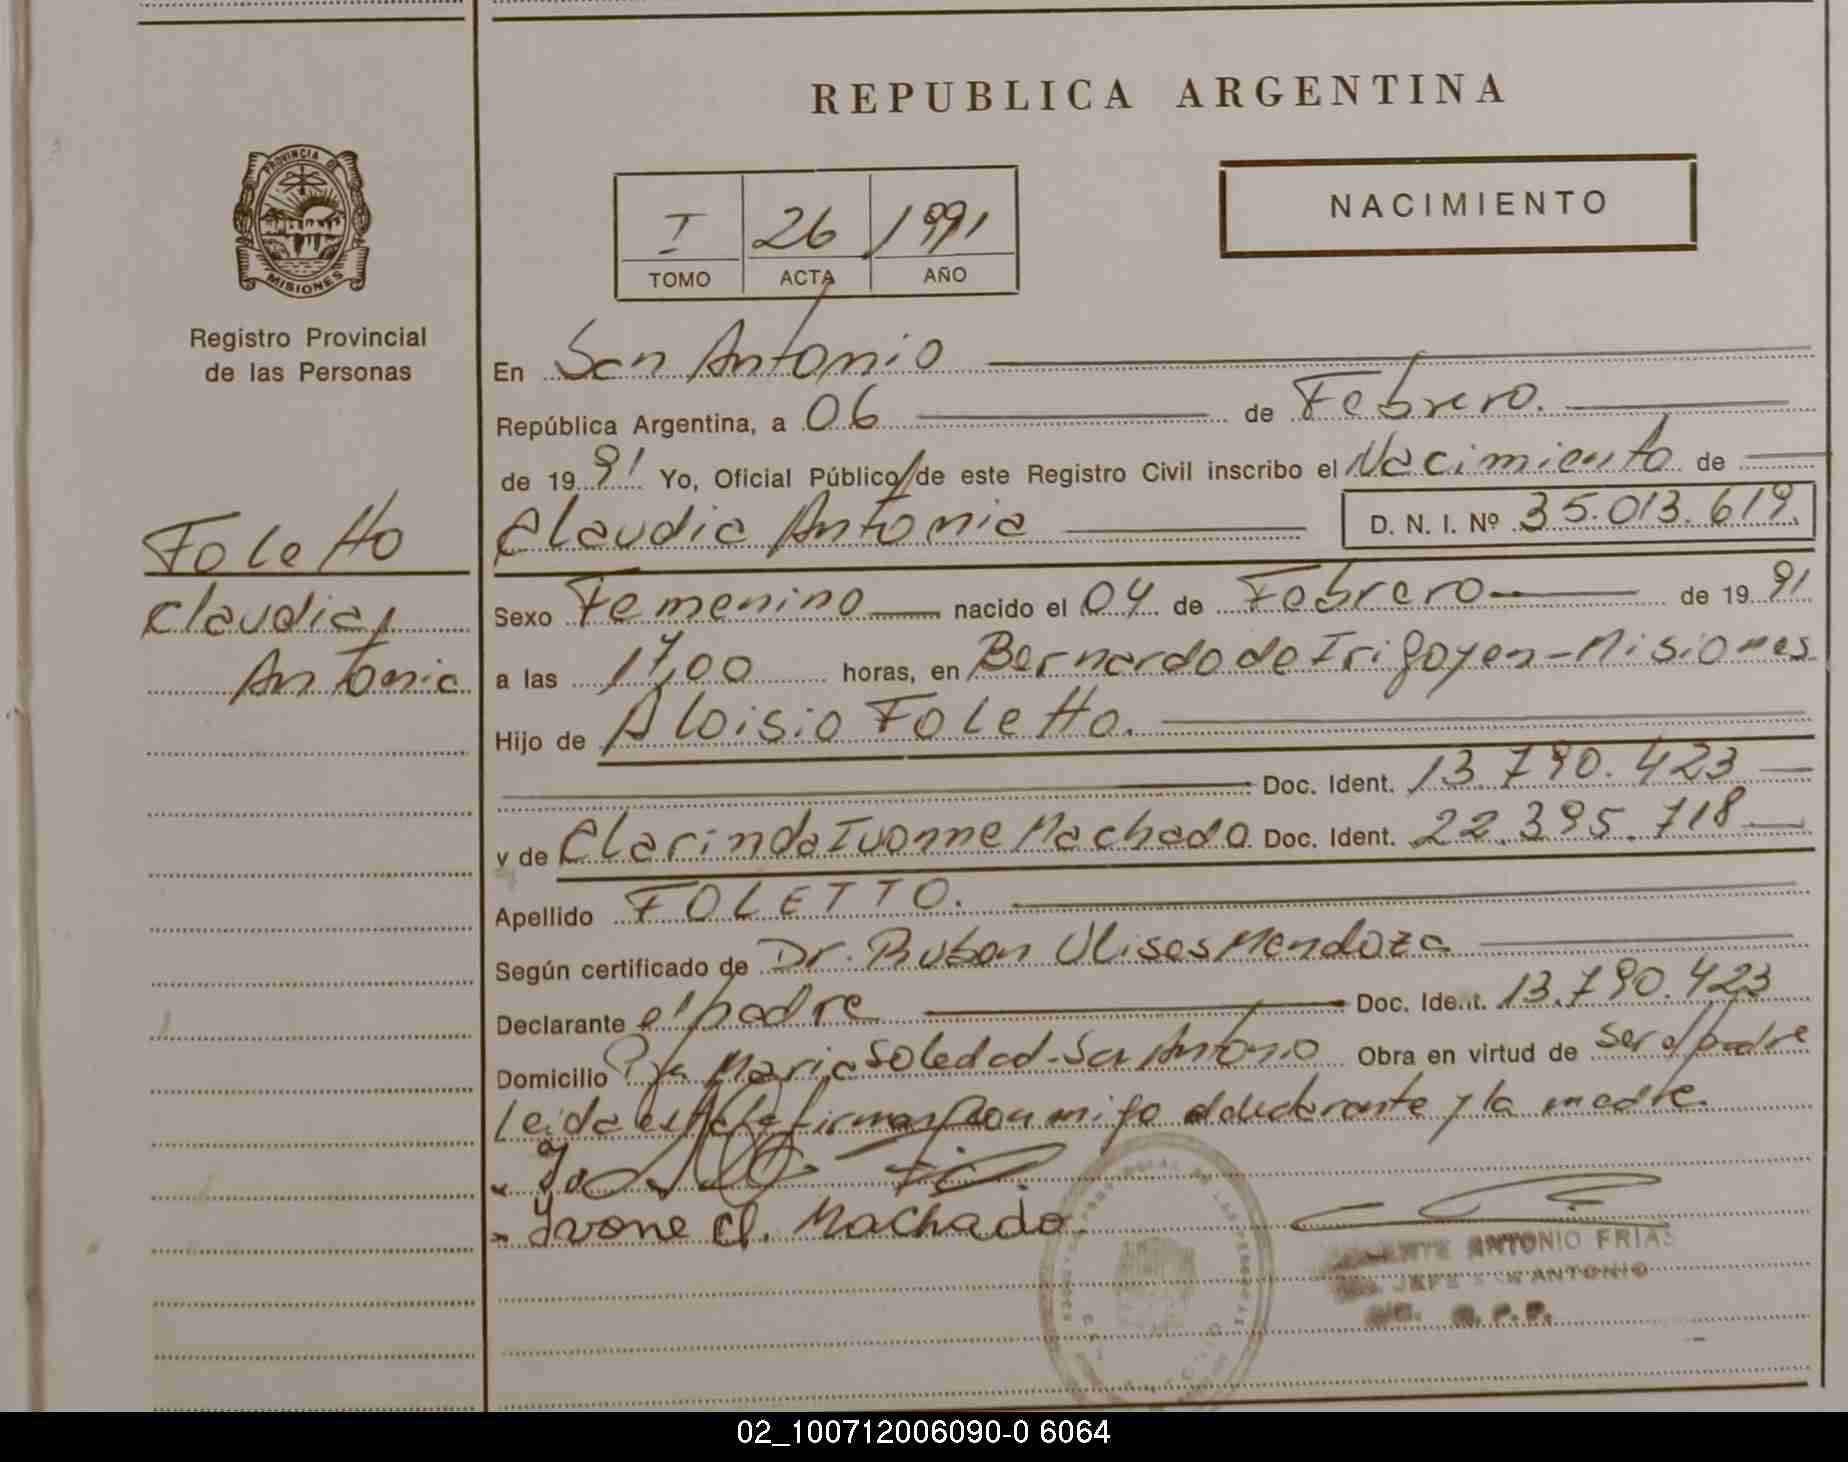 REPUBLICA ARGENTINA
PROVINCIA DE
MISIONES
Registro Provincial
de las Personas
I 26 1991
TOMO ACTA AÑO
NACIMIENTO
Foletto
Claudia
Antonia
En San Antonio
República Argentina, a 06 de Febrero.
de 1991 Yo, Oficial Público de este Registro Civil inscribo el Nacimiento de
Claudia Antonia D. N. I. Nº 35.013.619.
Sexo Femenino nacido el 04 de Febrero de 1991
a las 17,00 horas, en Bernardo de Irigoyen - Misiones
Hijo de Aloisio Foletto.
Doc. Ident. 13.790.423
y de Clarinda Ivonne Machado Doc. Ident. 22.395.718
Apellido FOLETTO.
Según certificado de Dr. Ruben Ulises Mendoza
Declarante el padre Doc. Ident. 13.790.423
Domicilio Maria Soledad - San Antonio Obra en virtud de ser el padre
Leida el acta firman conmigo el declarante y la madre.
Ivone Cl. Machado.
ANTONIO FRIAS
JEFE SAN ANTONIO
R. P. P.
02_100712006090-0 6064